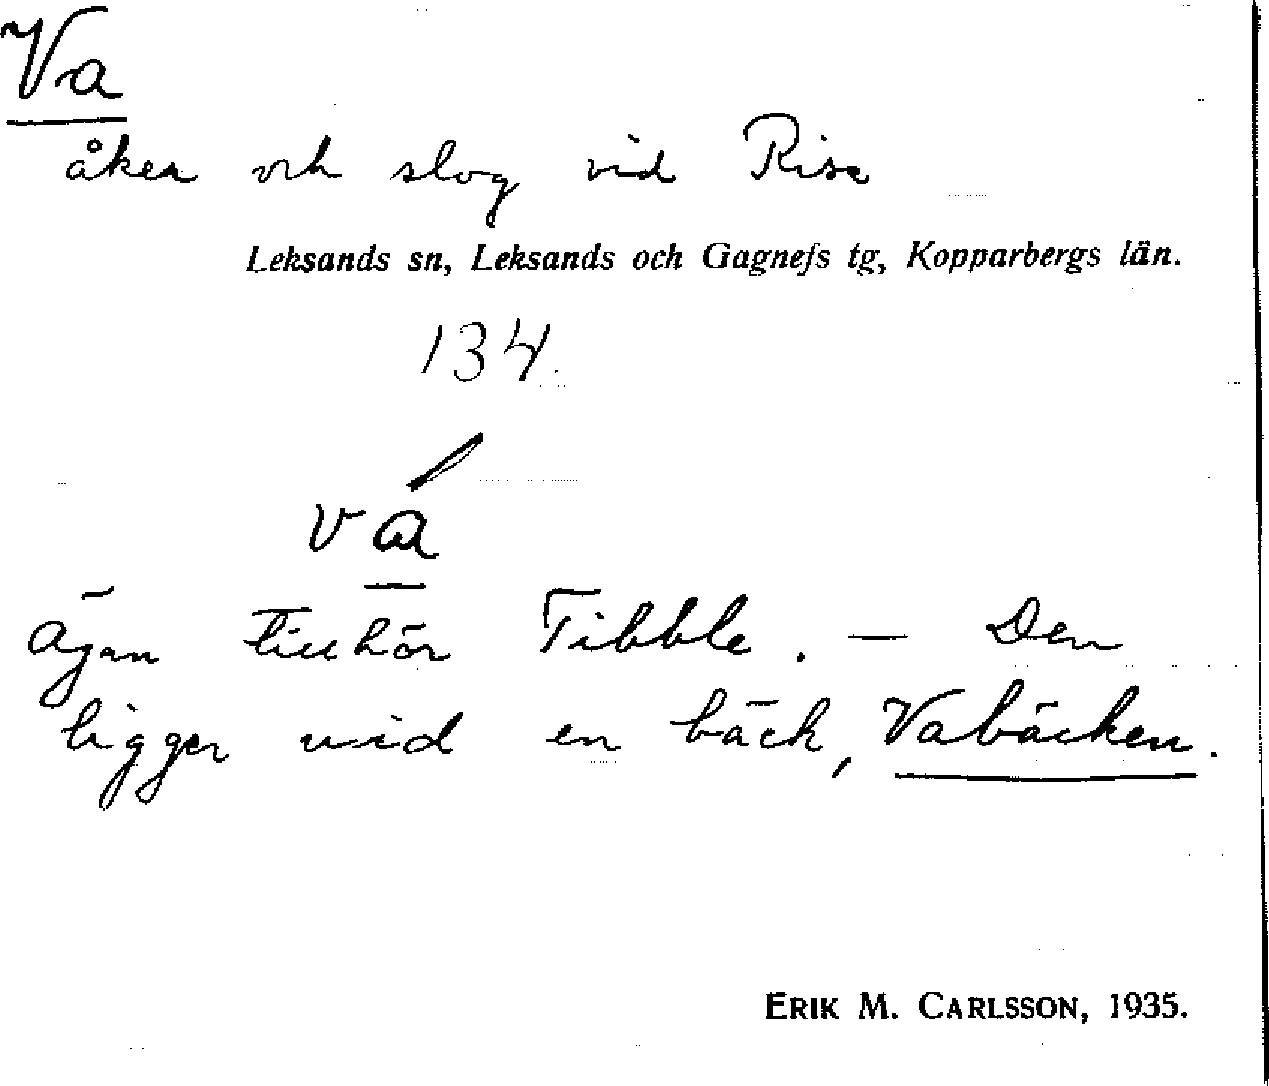 Va
åker och slog vid Risa
Leksands sn, Leksands och Gagnefs tg, Kopparbergs län.
134.
vá
Ägan tillhör Tibble. — Den
ligger vid en bäck, Vabäcken.
ERIK M. CARLSSON, 1935.